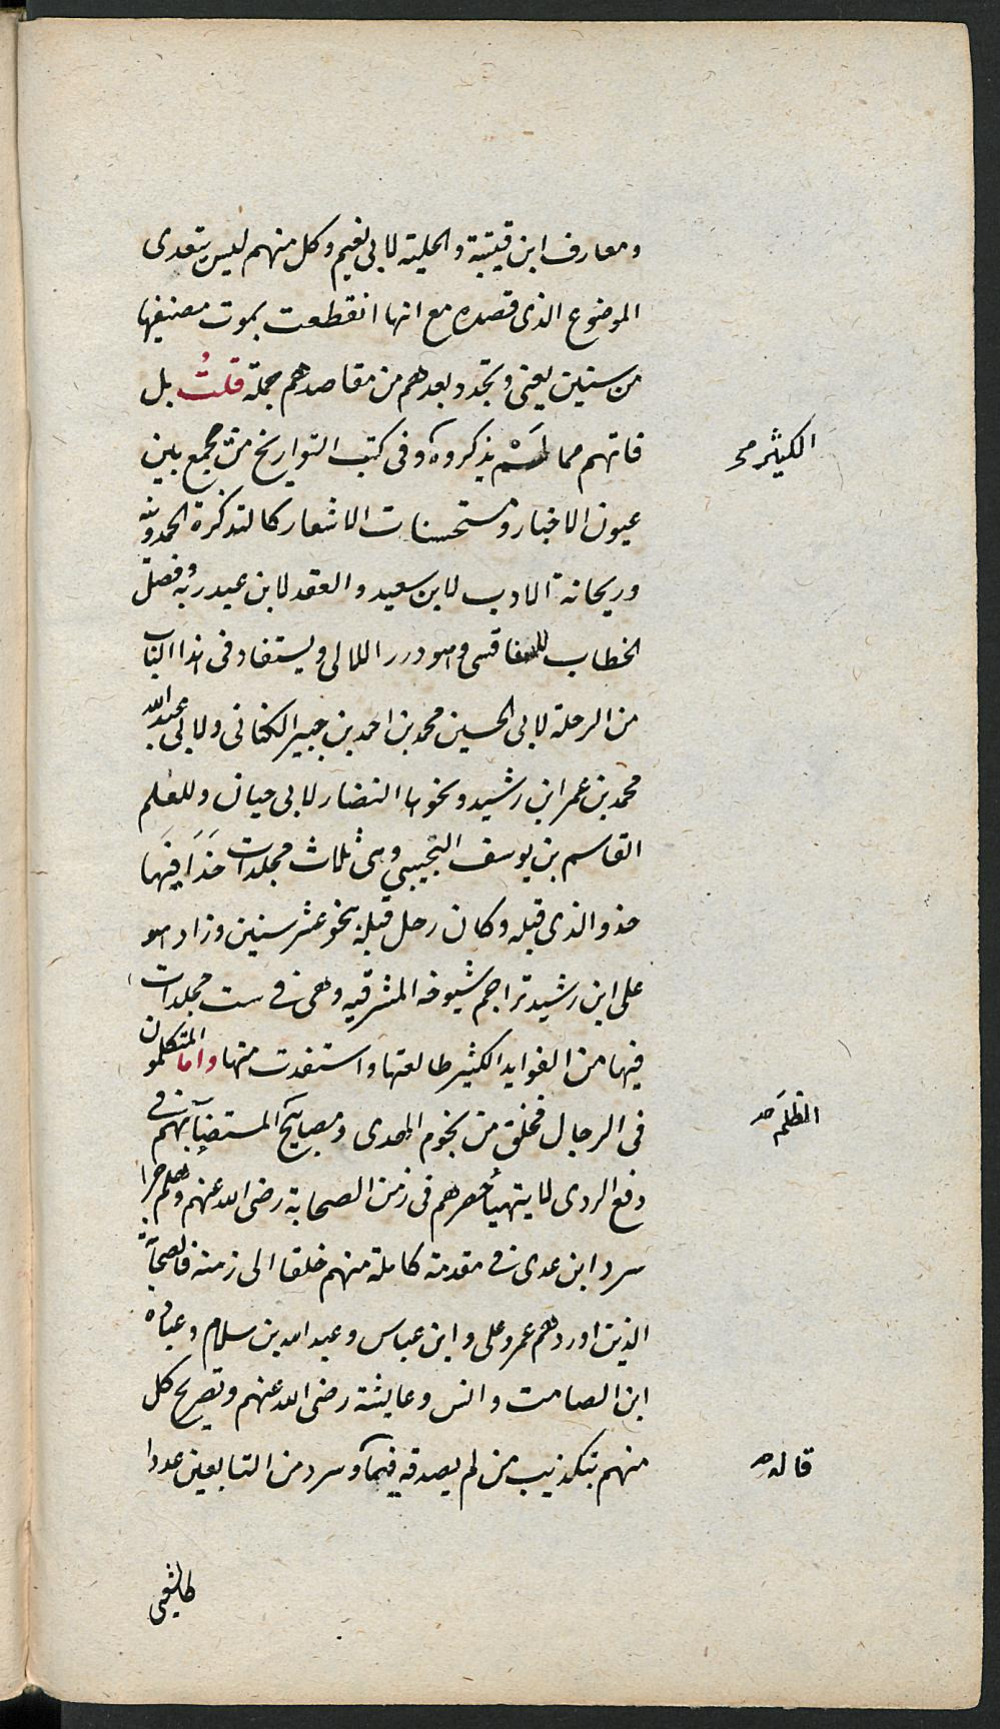 ومعارف ابن قتيبة والحلية لابى نعيم وكل منهم ليس يتعدى
الموضوع الذى قصده مع انها انقطعت بموت مصنفيها
من سنين يعنى وتجدد بعدهم من مقاصدهم جملة قلتُ بل
فاتهم مما لَمْ يذكروه وفى كتب التواريخ من جمع بين
الكثير صح
عيون الاخبار ومستحسنات الاشعار كالتذكرة الحمدونيه
وريحانة الادب لابن سعيد والعقد لابن عبد ربه وفصل
الخطاب للسفاقسى وهو درر اللالى ويستفاد فى هذا الباب
من الرحلة لابى الحسين محمد بن احمد بن جبير الكنانى ولابى عبد الله
محمد بن عمر ابن رشيد ونحوها النضار لابى حيان وللعلم
القاسم بن يوسف التجيبي وهى ثلاث مجلدات حَذَا فِيهَا
حذو الذى قبله وكان رحل قبله بنحو عشر سنين وزاد هو
على ابن رشيد تراجم شيوخه المشرقيه وهى فى ست مجلدات
فيها من الفوايد الكثير طالعتها واستفدت منها واما المتكلمون
فى الرجال فخلق من نجوم الهدى ومصابيح المستضآء بهم فى
الظلَم صح
دفع الردى لا يتهيأ حصرهم فى زمن الصحابة رضى الله عنهم وهلم جرا
سرد ابن عدى فى مقدمة كاملة منهم خلقا الى زمنه فالصحابة
الذين اوردهم عمر وعلى وابن عباس وعبد الله بن سلام وعبادة
ابن الصامت وانس وعايشة رضى الله عنهم وتصريح كل
منهم بتكذيب من لم يصدقه فيما وسرد من التابعين عددا
قاله صح
كالشعبى